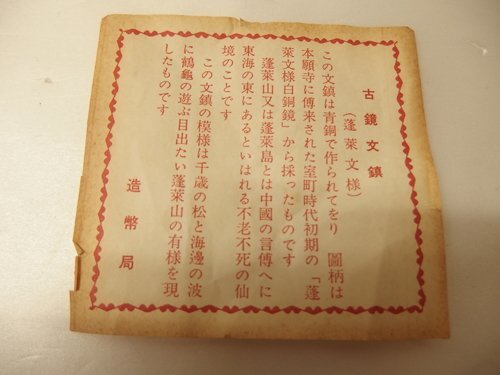 古鏡文鎮
（蓬萊文樣）
この文鎮は青銅で作られてをり　圖柄は
本願寺に傳来された室町時代初期の「蓬
萊文樣白銅鏡」から採ったものです
蓬萊山又は蓬萊島とは中國の言傳へに
東海の東にあるといはれる不老不死の仙
境のことです
この文鎮の模樣は千歳の松と海邊の波
に鶴龜の遊ぶ目出たい蓬萊山の有樣を現
したものです
造幣局